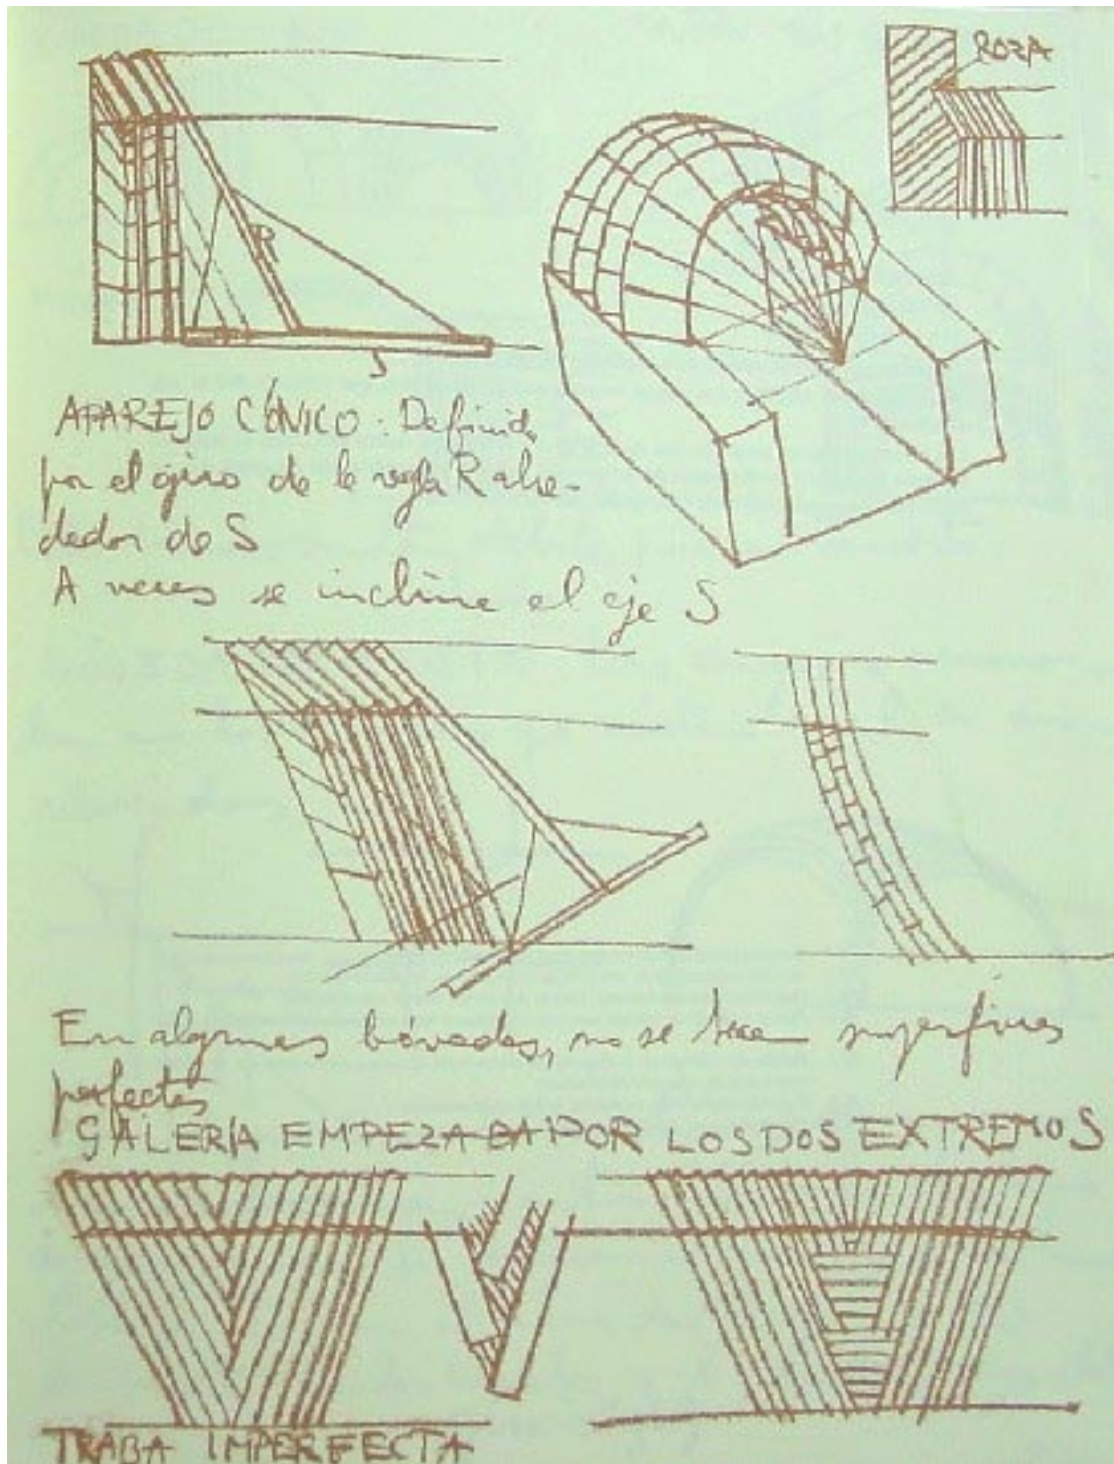 ROZA
R
S
APAREJO CÓNICO: Definido
por el giro de la regla R alre-
dedor de S
A veces se inclina el eje S
En algunas bóvedas, no se tiene superficies
perfectas
GALERÍA EMPEZADA POR LOS DOS EXTREMOS
TRABA IMPERFECTA